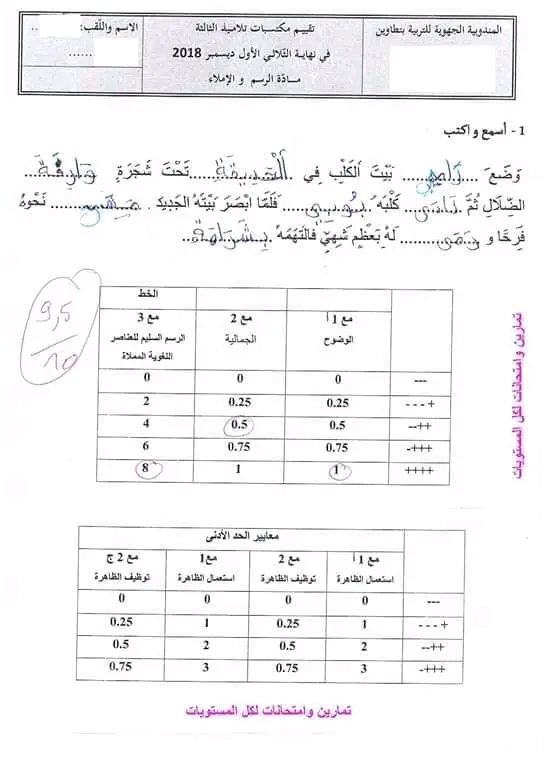 المندوبية الجهوية للتربية بتطاوين
تقييم مكتسبات تلاميذ الثالثة
في نهاية الثلاثي الأول ديسمبر 2018
مادّة الرسم و الإملاء
الاسم واللّقب: ..
......
1 - أسمع و اكتب
وَضَعَ ....رَامِي.... بَيْتَ الكَلْبِ فِي ..الْحَدِيقَةِ.....تَحْتَ شَجَرَةٍ وَارِفَةِ...
الضِّلَالِ ثُمَّ ..نَادَى.... كَلْبَهُ بُوبِي..... فَلَمَّا ابْصَرَ بَيْتَهُ الجَدِيدَ . مَشَى......... نَحْوهُ
فَرِحًا و رَمَى......... لَهُ بِعَظْمٍ شَهِيٍّ فَالتَهَمَهُ بِشَرَاهَةٍ...
9,5
10
الخط
مع 1 أ الوضوح
مع 2 الجمالية
مع 3 الرسم السليم للعناصر اللغوية المملاة
--- 0 0 0
---+ 0.25 0.25 2
--++ 0.5 0.5 4
-+++ 0.75 0.75 6
++++ 1 1 8
تمارين وامتحانات لكل المستويات
معايير الحد الأدنى
مع 1 أ استعمال الظاهرة
مع 2 توظيف الظاهرة
مع1 استعمال الظاهرة
مع 2 ج توظيف الظاهرة
--- 0 0 0 0
---+ 1 0.25 1 0.25
--++ 2 0.5 2 0.5
-+++ 3 0.75 3 0.75
تمارين وامتحانات لكل المستويات